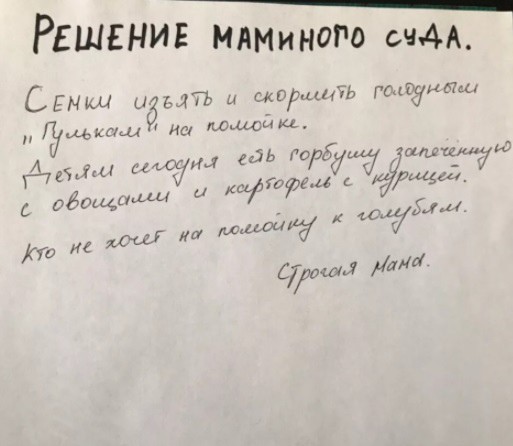 РЕШЕНИЕ МАМИНОГО СУДА.
СЕМКИ изъять и скормить голодным
„Гулькам" на помойке.
Детям сегодня есть горбушу запечённую
с овощами и картофель с курицей.
Кто не хочет на помойку к голубям.
Строгая мама.